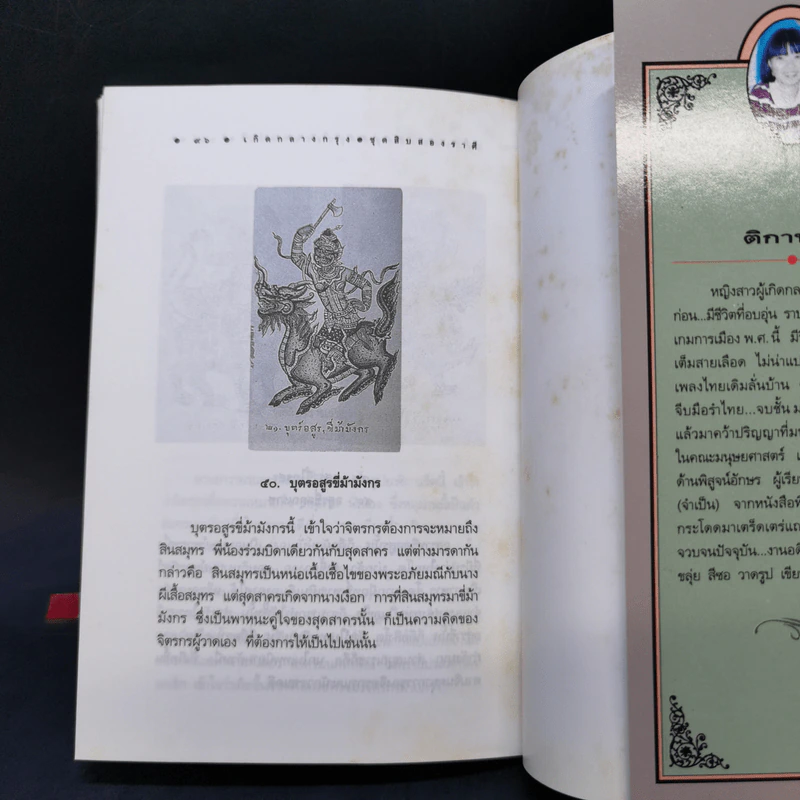 ๑ ๙๖ ๑ เกิดกลางกรุง๑ชุดสิบสองราศี
๒๑. บุตร์อสูร, ขี่ม้ามังกร
๔๐. บุตรอสูรขี่ม้ามังกร
บุตรอสูรขี่ม้ามังกรนี้ เข้าใจว่าจิตรกรต้องการจะหมายถึง
สินสมุทร พี่น้องร่วมบิดาเดียวกันกับสุดสาคร แต่ต่างมารดากัน
กล่าวคือ สินสมุทรเป็นหน่อเนื้อเชื้อไขของพระอภัยมณีกับนาง
ผีเสื้อสมุทร แต่สุดสาครเกิดจากนางเงือก การที่สินสมุทรมาขี่ม้า
มังกร ซึ่งเป็นพาหนะคู่ใจของสุดสาครนั้น ก็เป็นความคิดของ
จิตรกรผู้วาดเอง ที่ต้องการให้เป็นไปเช่นนั้น
ติกา
หญิงสาวผู้เกิดกล
ก่อน...มีชีวิตที่อบอุ่น ราบ
เกมการเมือง พ.ศ. นี้ มี
เต็มสายเลือด ไม่น่าแป
เพลงไทยเดิมลั่นบ้าน
จีบมือรำไทย...จบชั้น ม
แล้วมาคว้าปริญญาที่ม
ในคณะมนุษยศาสตร์
ด้านพิสูจน์อักษร ผู้เรีย
(จำเป็น) จากหนังสือพิ
กระโดดมาเตร็ดเตร่แถ
จวบจนปัจจุบัน...งานอดิ
ขลุ่ย สีซอ วาดรูป เขีย